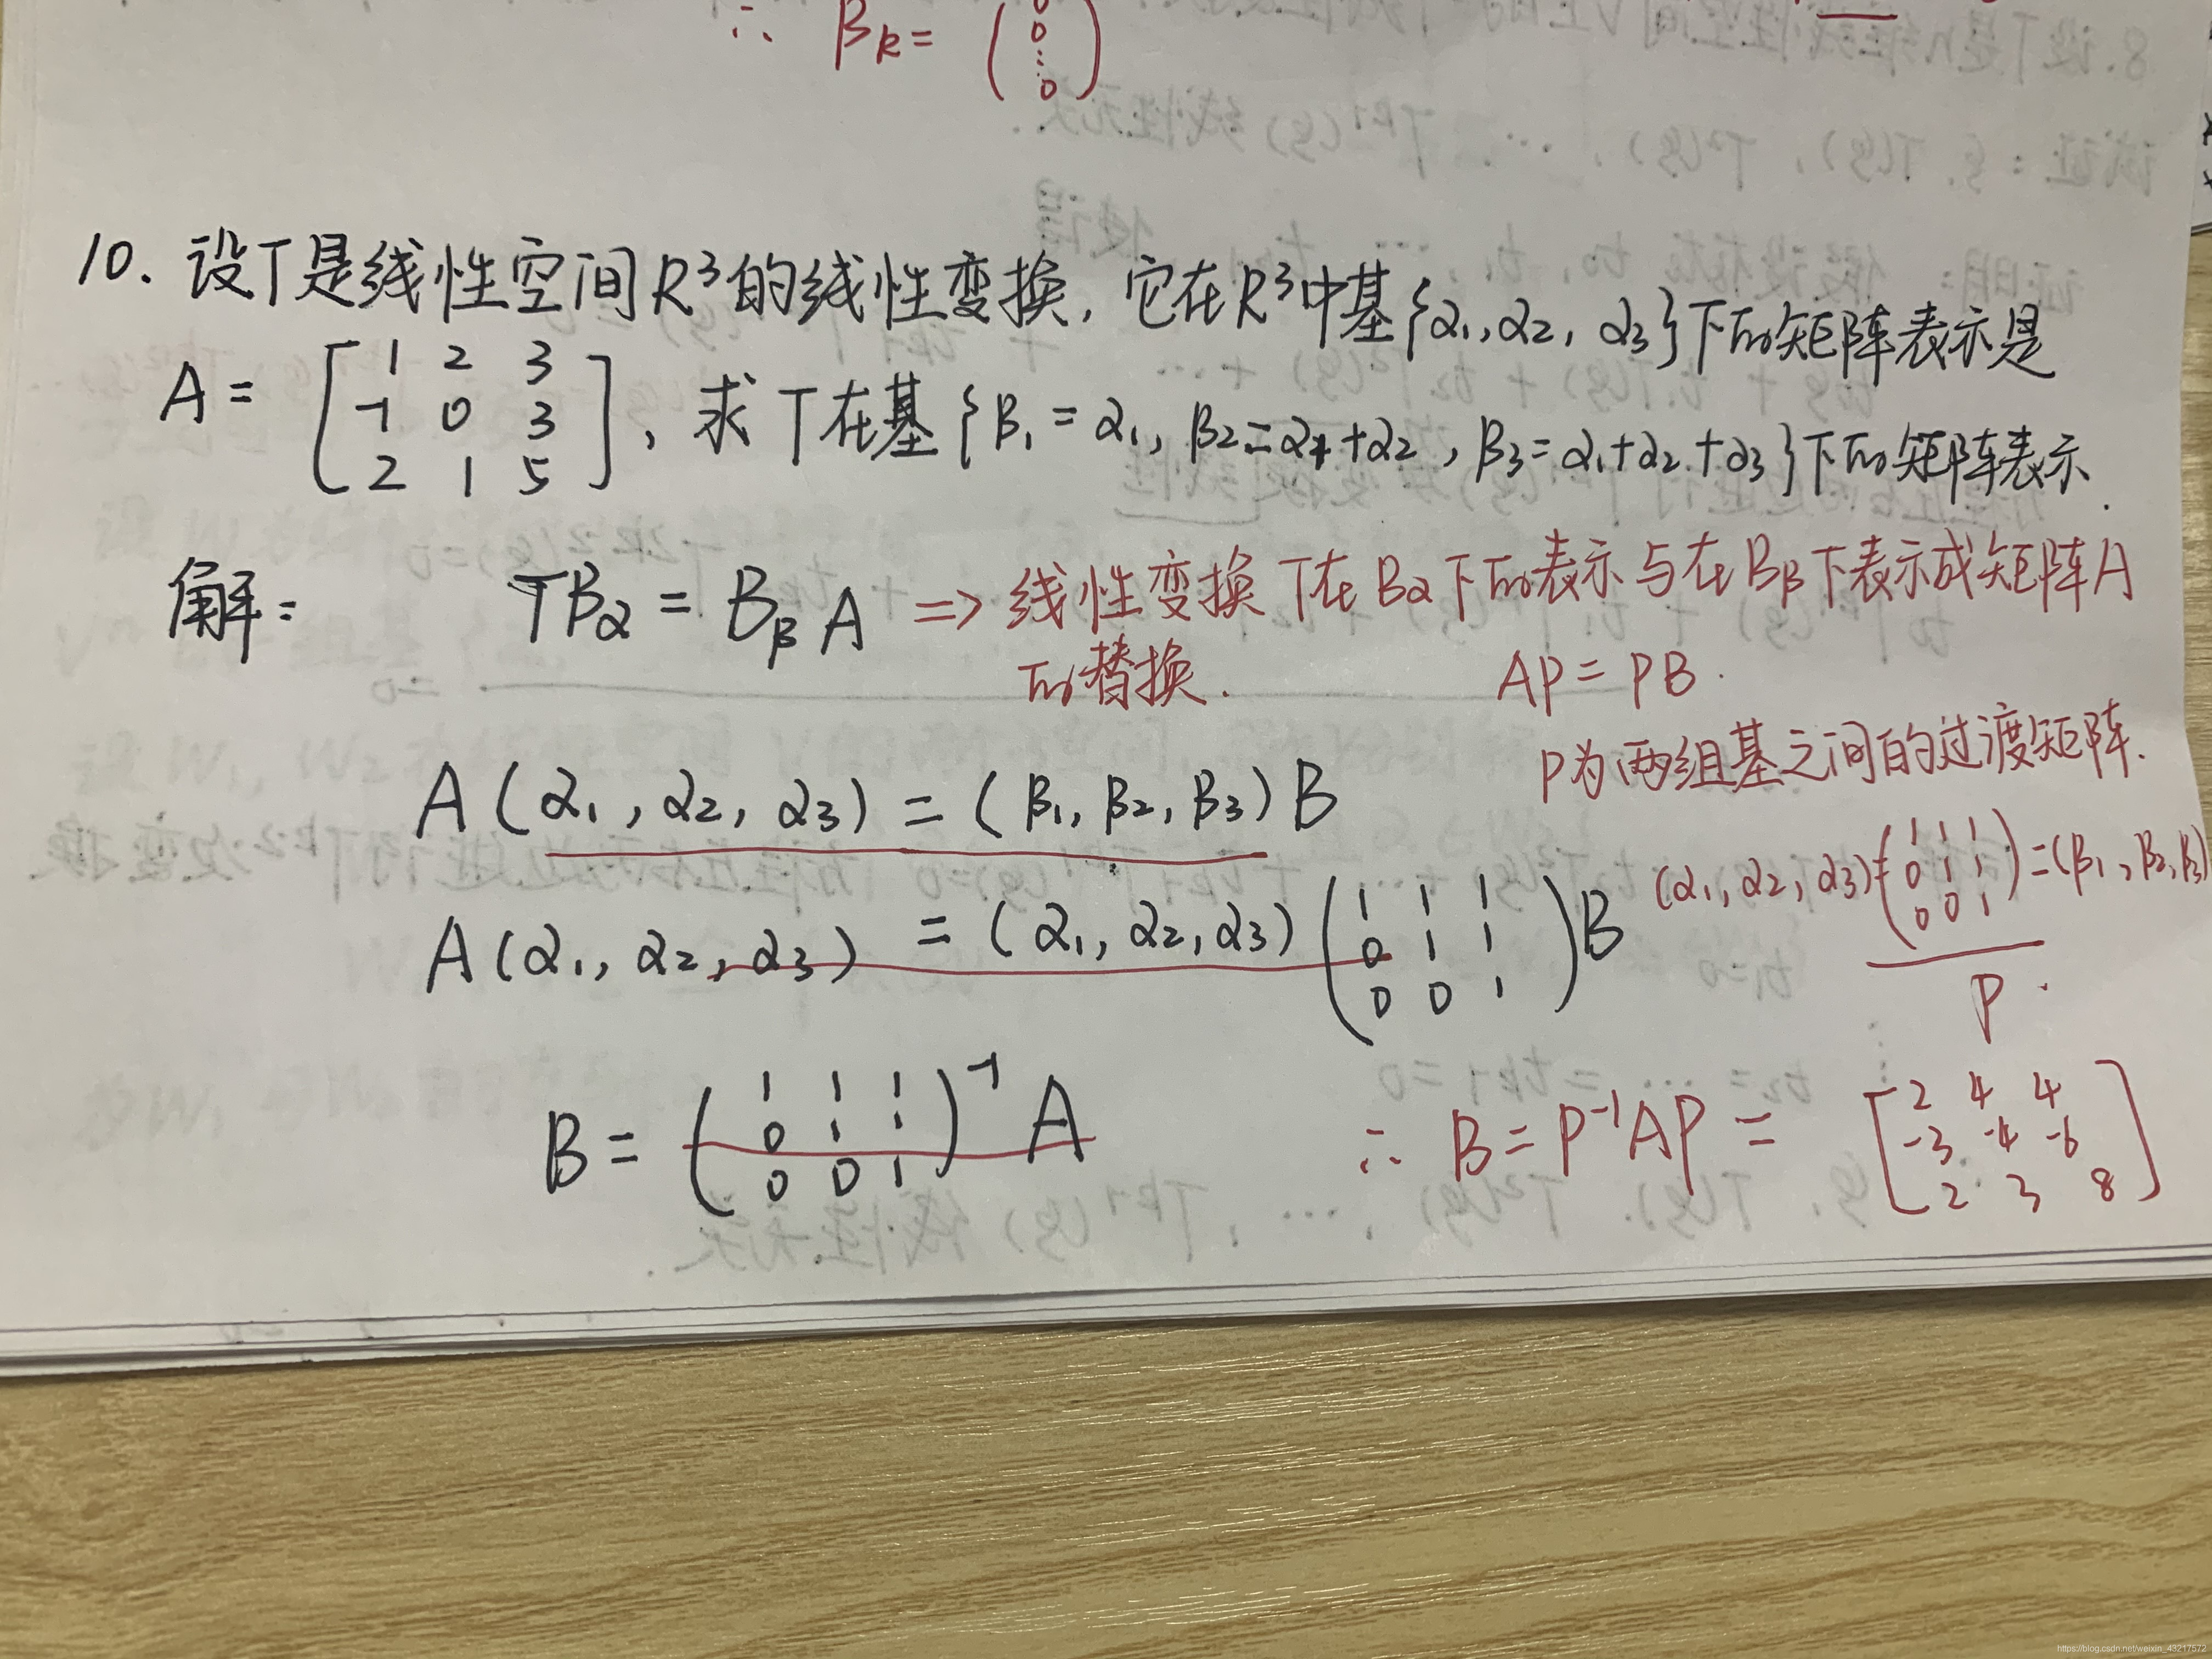 ∴ βk = (0 0 ⋮ 0)
10. 设T是线性空间R³的线性变换, 它在R³中基{α₁, α₂, α₃}下的矩阵表示是
A = [1 2 3; -1 0 3; 2 1 5], 求T在基{β₁ = α₁, β₂ = α₁ + α₂, β₃ = α₁ + α₂ + α₃}下的矩阵表示.
解: TBα = Bβ A => 线性变换T在Bα下的表示与在Bβ下表示成矩阵A
的替换. AP = PB.
P为两组基之间的过渡矩阵.
A(α₁, α₂, α₃) = (β₁, β₂, β₃)B
(α₁, α₂, α₃)(1 1 1; 0 1 1; 0 0 1) = (β₁, β₂, β₃)
P.
A(α₁, α₂, α₃) = (α₁, α₂, α₃)(1 1 1; 0 1 1; 0 0 1)B
B = (1 1 1; 0 1 1; 0 0 1)⁻¹ A
∴ B = P⁻¹AP = [2 4 4; -3 -4 -6; 2 3 8]
https://blog.csdn.net/weixin_43217572